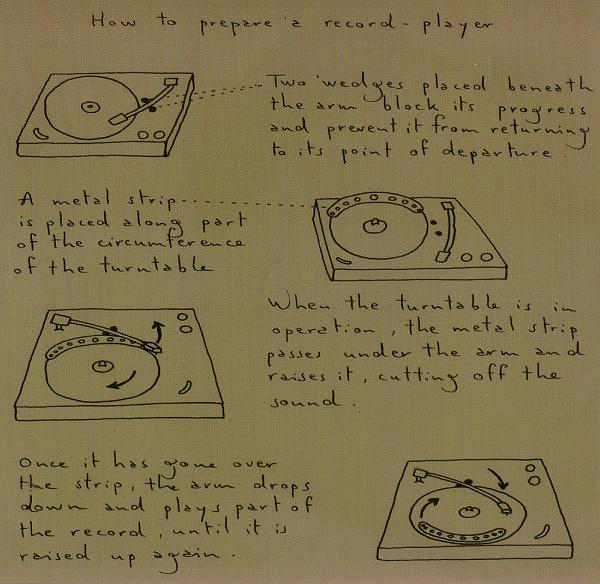 How to prepare a record-player
Two wedges placed beneath
the arm block its progress
and prevent it from returning
to its point of departure.
A metal strip
is placed along part
of the circumference
of the turntable
When the turntable is in
operation, the metal strip
passes under the arm and
raises it, cutting off the
sound.
Once it has gone over
the strip, the arm drops
down and plays part of
the record, until it is
raised up again.